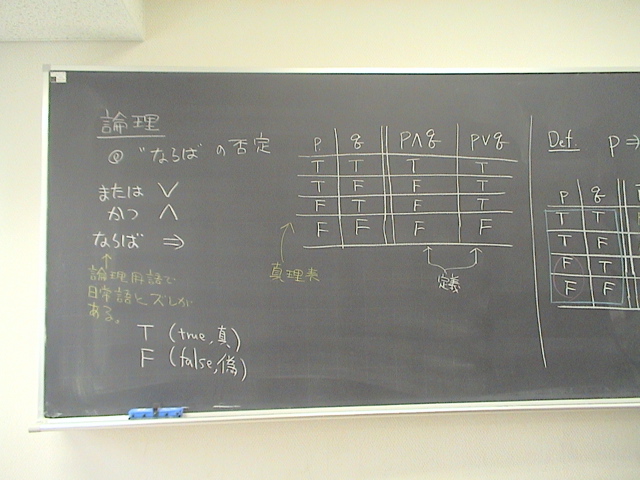 論理
@ "ならば" の否定
または ∨
かつ ∧
ならば ⇒
↑
論理用語で
日常語とズレが
ある。
T (true, 真)
F (false, 偽)
p q p∧q p∨q
T T T T
T F F T
F T F T
F F F F
真理表
定義
Def. p ⇒
p q
T T
T F
F T
F F